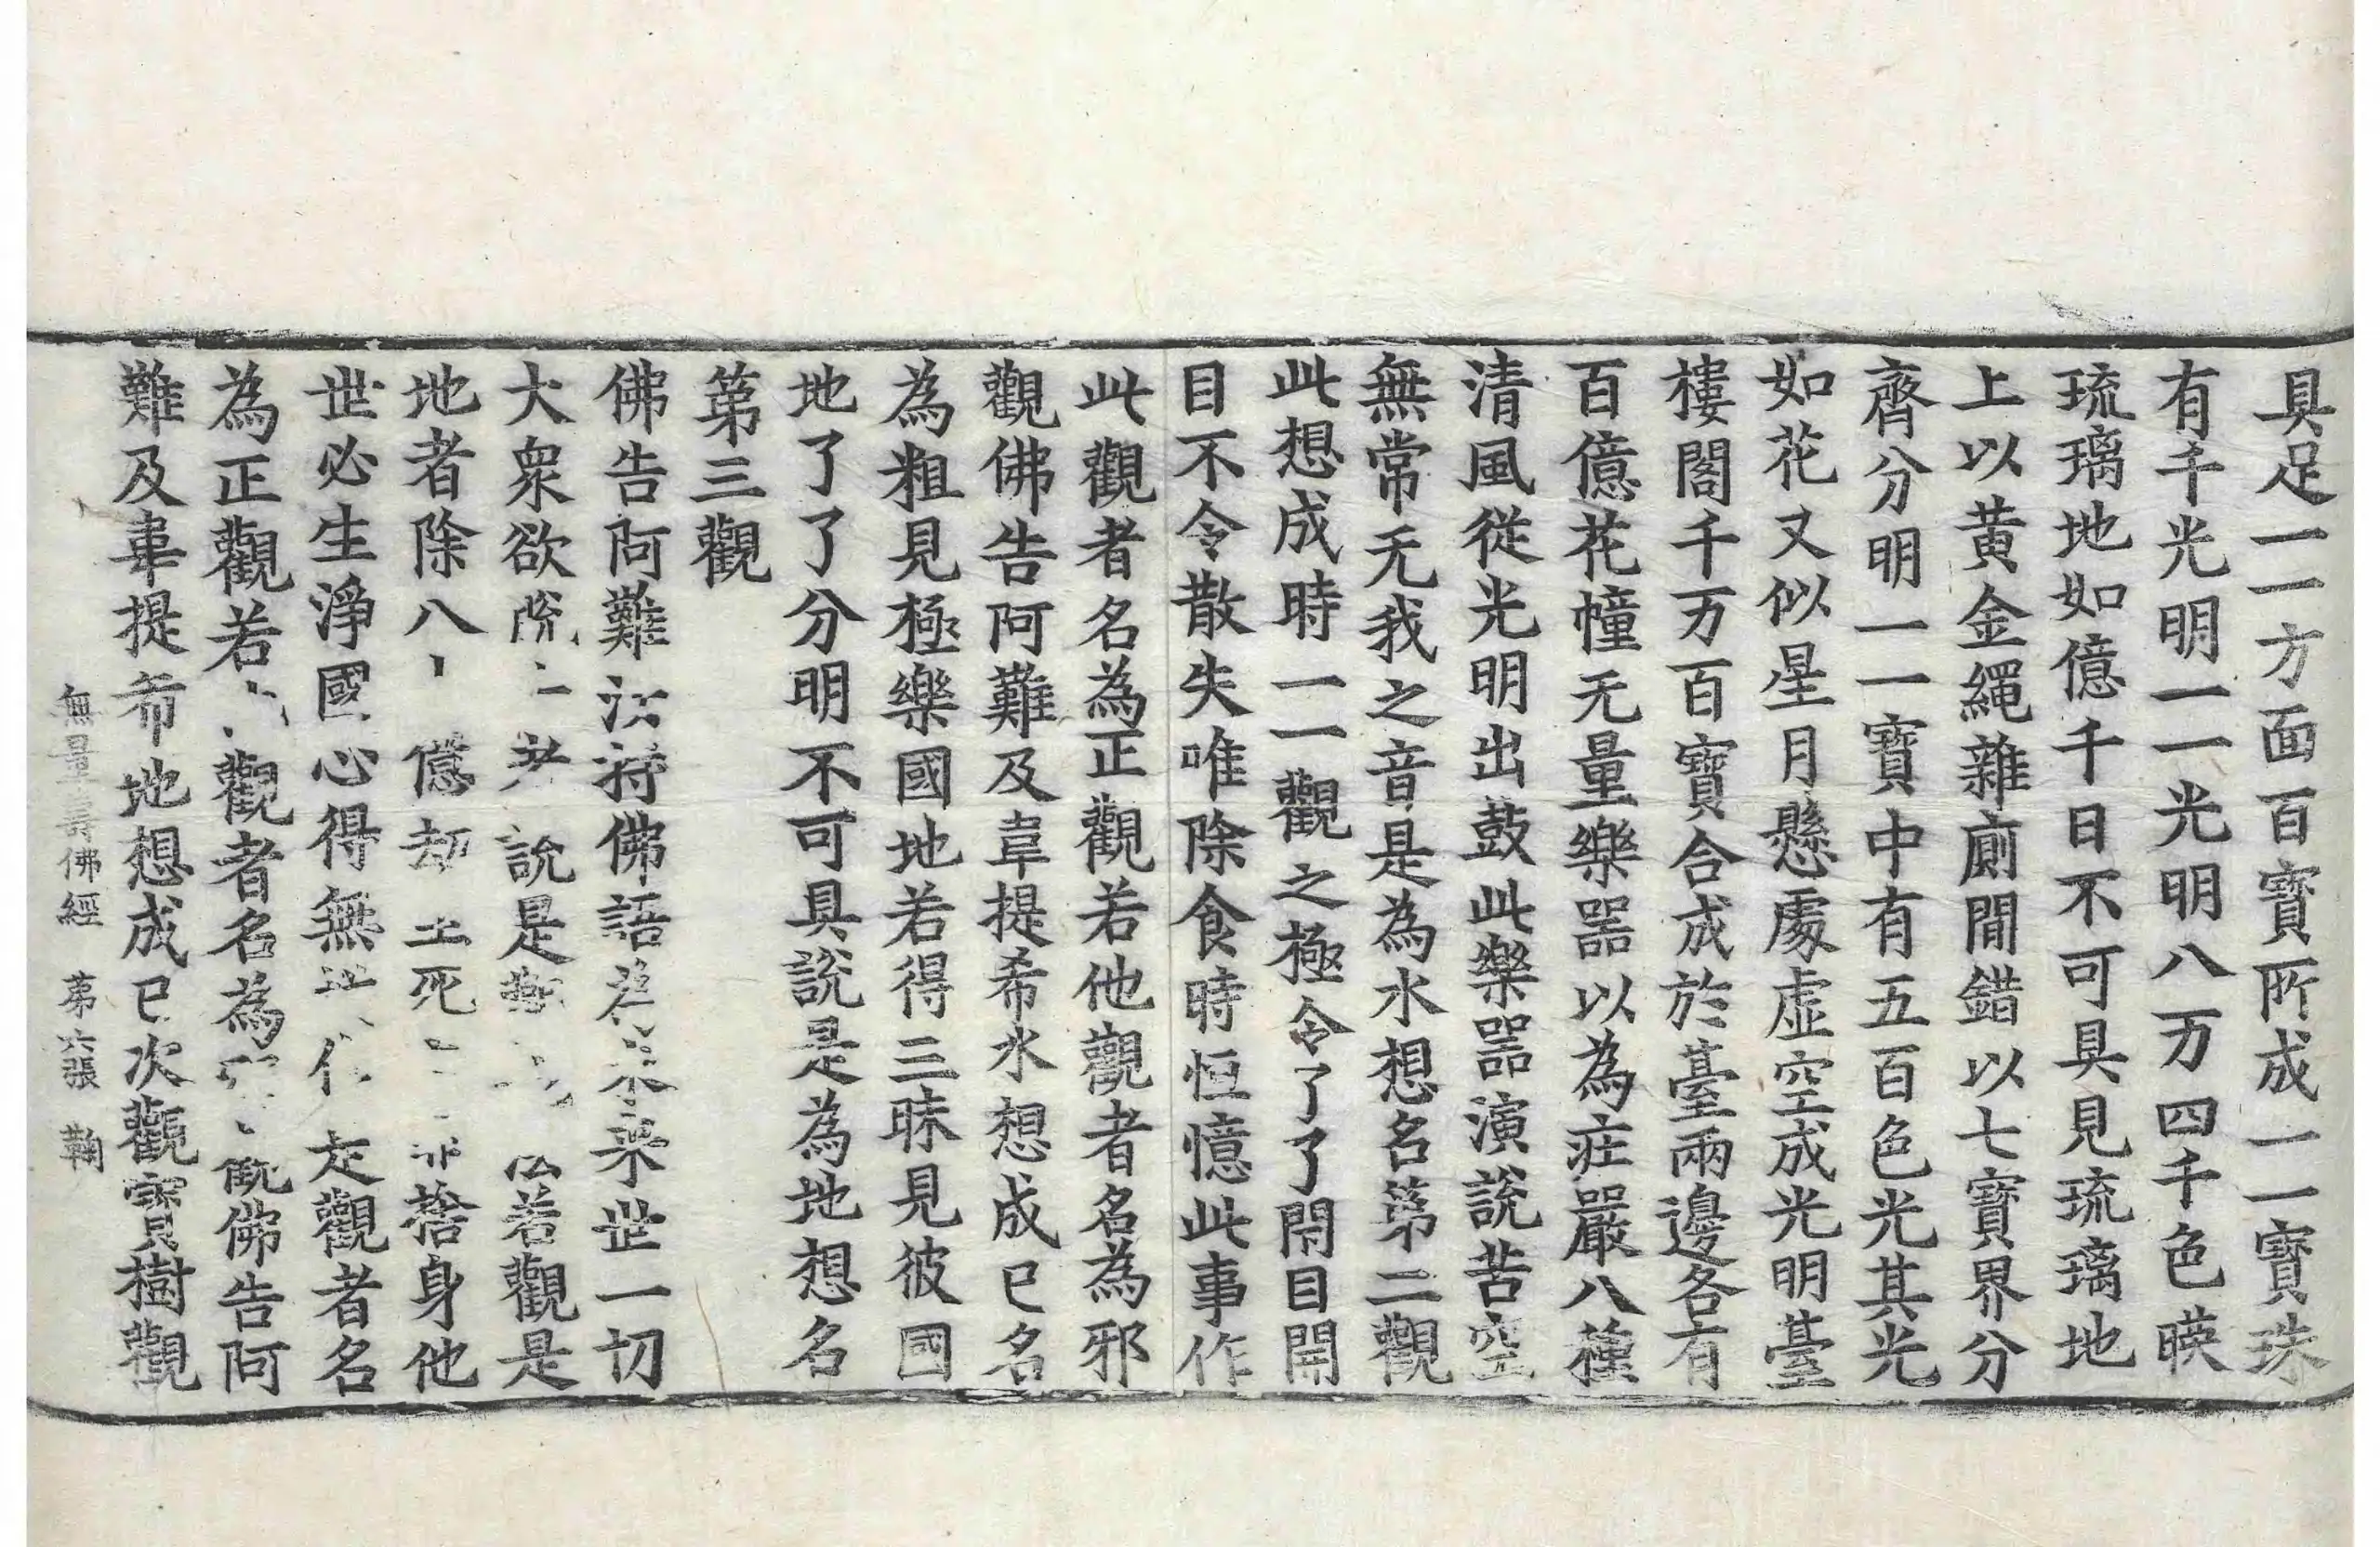 具足一一方面百寶所成一一寶珠
有千光明一一光明八万四千色暎
琉璃地如億千日不可具見琉璃地
上以黄金繩雜廁間錯以七寶界分
齊分明一一寶中有五百色光其光
如花又似星月懸處虛空成光明臺
樓閣千万百寶合成於臺兩邊各有
百億花幢无量樂器以為莊嚴八種
清風從光明出鼓此樂器演說苦空
無常无我之音是為水想名第二觀
此想成時一一觀之極令了了閇目開
目不令散失唯除食時恒憶此事作
此觀者名為正觀若他觀者名為邪
觀佛告阿難及韋提希水想成已名
為粗見極樂國地若得三昧見彼國
地了了分明不可具說是為地想名
第三觀
佛告阿難汝持佛語為未來世一切
大衆欲脫 說是 若觀是
地者除八 億劫 死 捨身他
世必生淨國心得無 是觀者名
為正觀若 觀者名為 觀佛告阿
難及韋提希地想成已次觀寶樹觀
無量壽佛經 第六張 鞠